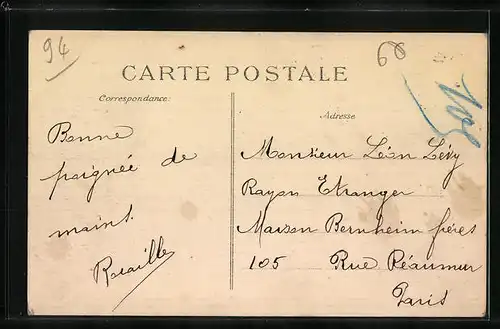 94
60
CARTE POSTALE
Correspondance:
Adresse
Bonne
poignée de
mains.
Monsieur Léon Lévy
Rayon Etranger
Maison Bernheim frères
105 Rue Réaumur
Paris